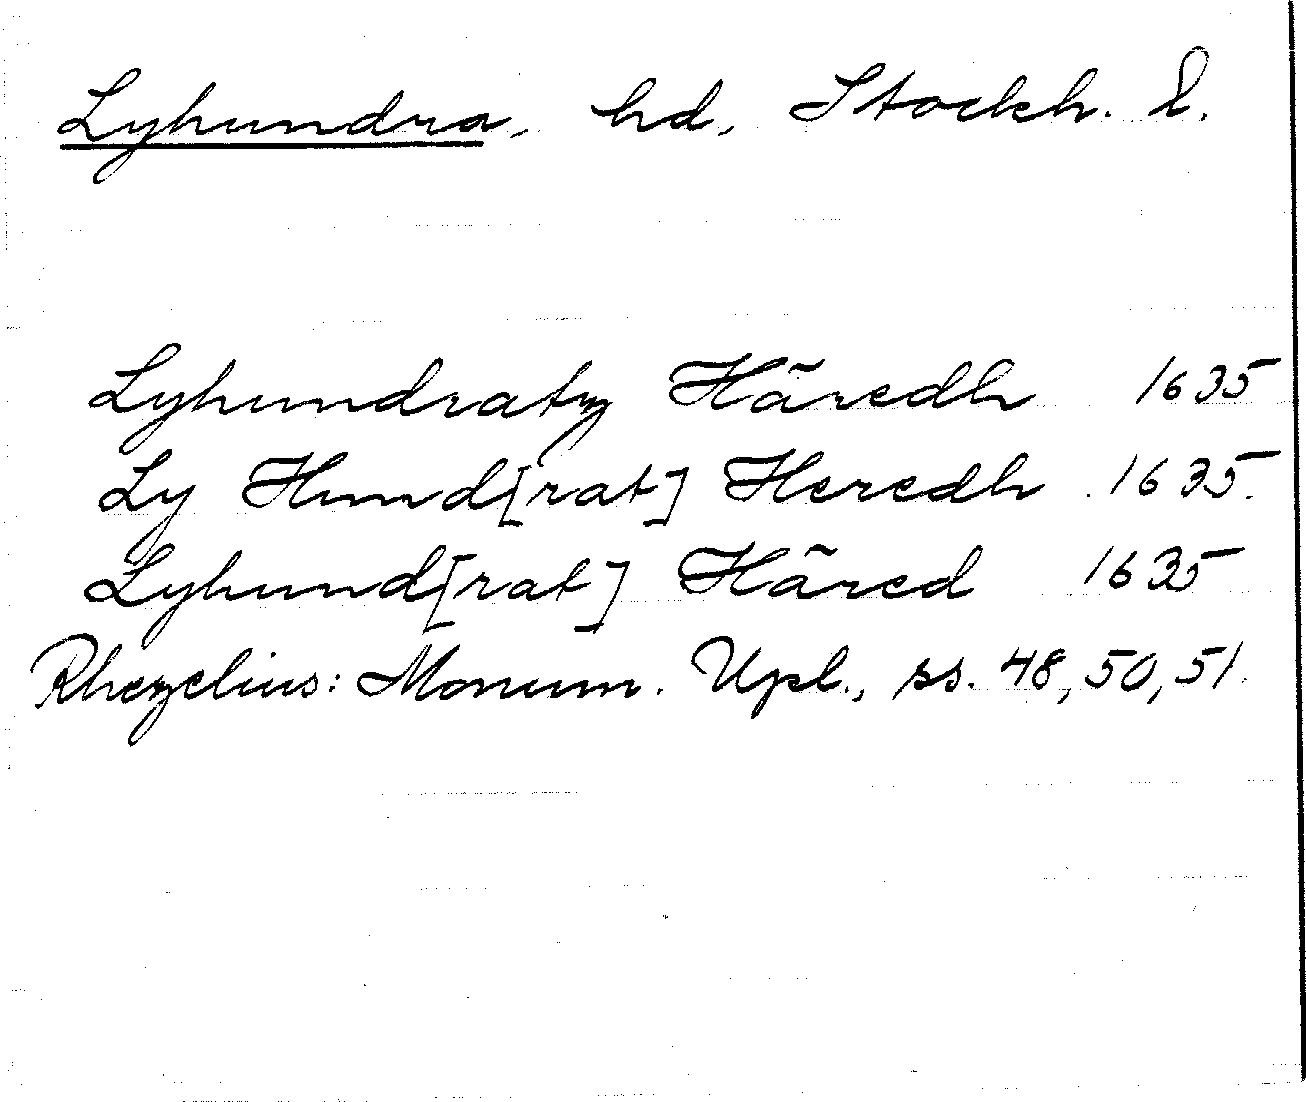 Lyhundra, hd, Stockh. l.
Lyhundratz Häredh 1635
Ly Hund[rat] Heredh 1635.
Lyhund[rat] Häred 1635
Rhezelius: Monum. Upl., ss. 48, 50, 51.